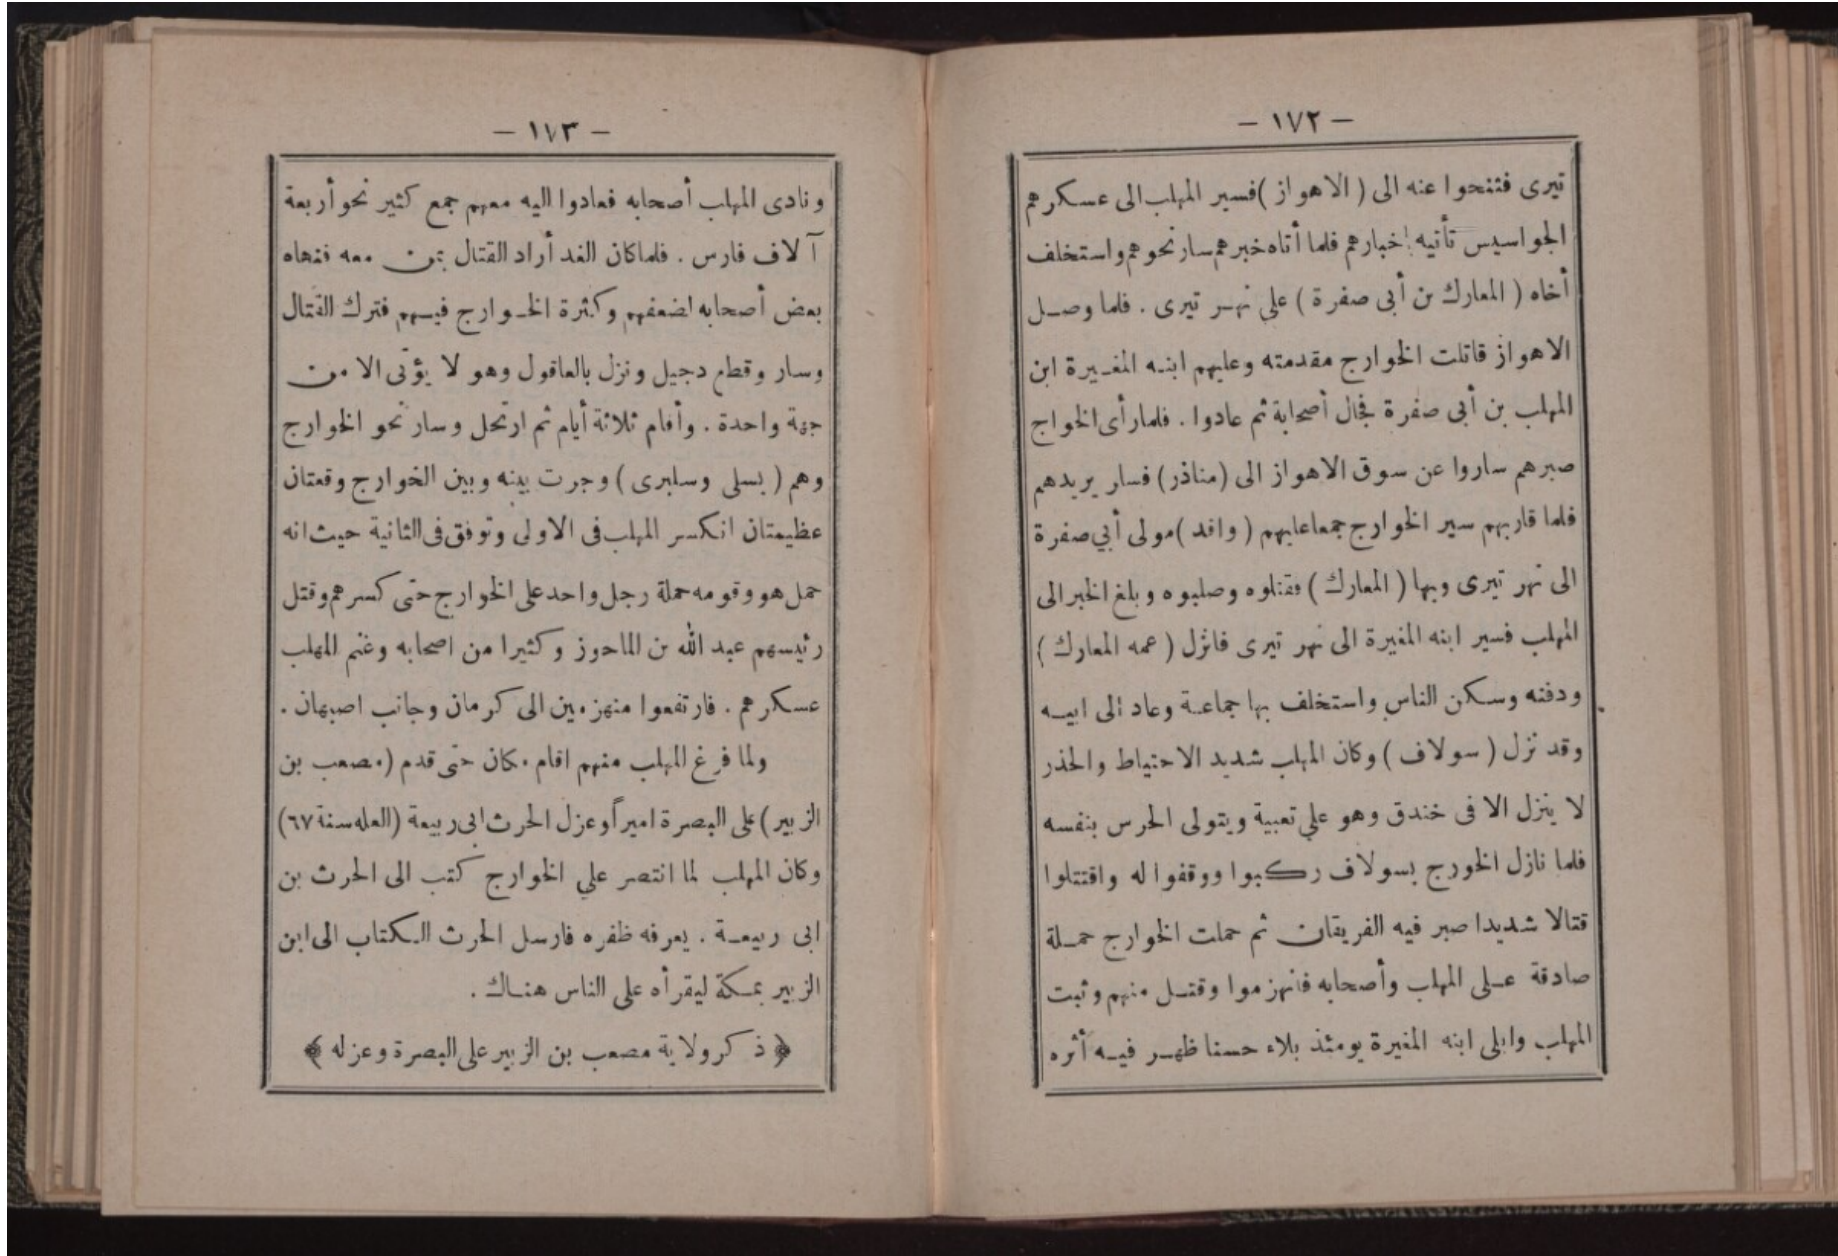 — ١٧٢ —
تيرى فتنحوا عنه الى ( الاهواز ) فسير المهلب الى عسكرهم
الجواسيس تأتيه اخبارهم فلما أتاه خبرهم سار نحوهم واستخلف
أخاه ( المعارك بن أبى صفرة ) على نهر تيرى . فلما وصل
الاهواز قاتلت الخوارج مقدمته وعليهم ابنه المغيرة ابن
المهلب بن أبى صفرة فجال أصحابة ثم عادوا . فلما رأى الخواج
صبرهم ساروا عن سوق الاهواز الى (مناذر) فسار يريدهم
فلما قاربهم سير الخوارج جمعا عليهم ( وافد ) مولى أبي صفرة
الى نهر تيرى وبها ( المعارك ) فقتلوه وصلبوه وبلغ الخبر الى
المهلب فسير ابنه المغيرة الى نهر تيرى فانزل ( عمه المعارك )
ودفنه وسكن الناس واستخلف بها جماعة وعاد الى ابيه
وقد نزل ( سولاف ) وكان المهلب شديد الاحتياط والحذر
لا ينزل الا فى خندق وهو علي تعبية ويتولى الحرس بنفسه
فلما نازل الخورج بسولاف ركبوا ووقفوا له واقتتلوا
قتالا شديدا صبر فيه الفريقان ثم حملت الخوارج حملة
صادقة على المهلب وأصحابه فانهزموا وقتل منهم وثبت
المهلب وابلى ابنه المغيرة يومئذ بلاء حسنا ظهر فيه أثره
— ١٧٣ —
ونادى المهلب أصحابه فعادوا اليه معهم جمع كثير نحو أربعة
آلاف فارس . فلما كان الغد أراد القتال بمن معه فنهاه
بعض أصحابه لضعفهم وكثرة الخوارج فيهم فترك القتال
وسار وقطع دجيل ونزل بالعاقول وهو لا يؤتى الا من
جهة واحدة . وأقام ثلاثة أيام ثم ارتحل وسار نحو الخوارج
وهم ( بسلى وسلبرى ) وجرت بينه وبين الخوارج وقعتان
عظيمتان انكسر المهلب فى الاولى وتوفق فى الثانية حيث انه
حمل هو وقومه حملة رجل واحد على الخوارج حتى كسرهم وقتل
رئيسهم عبد الله بن الماحوز وكثيرا من اصحابه وغنم المهلب
عسكرهم . فارتفعوا منهزمين الى كرمان وجانب اصبهان .
ولما فرغ المهلب منهم اقام مكان حتى قدم (مصعب بن
الزبير) على البصرة اميراً وعزل الحرث ابى ربيعة (العله سنة ٦٧)
وكان المهلب لما انتصر علي الخوارج كتب الى الحرث بن
ابى ربيعة . يعرفه ظفره فارسل الحرث الكتاب الى ابن
الزبير بمكة ليقرأه على الناس هناك .
﴿ ذكر ولاية مصعب بن الزبير على البصرة وعزله ﴾